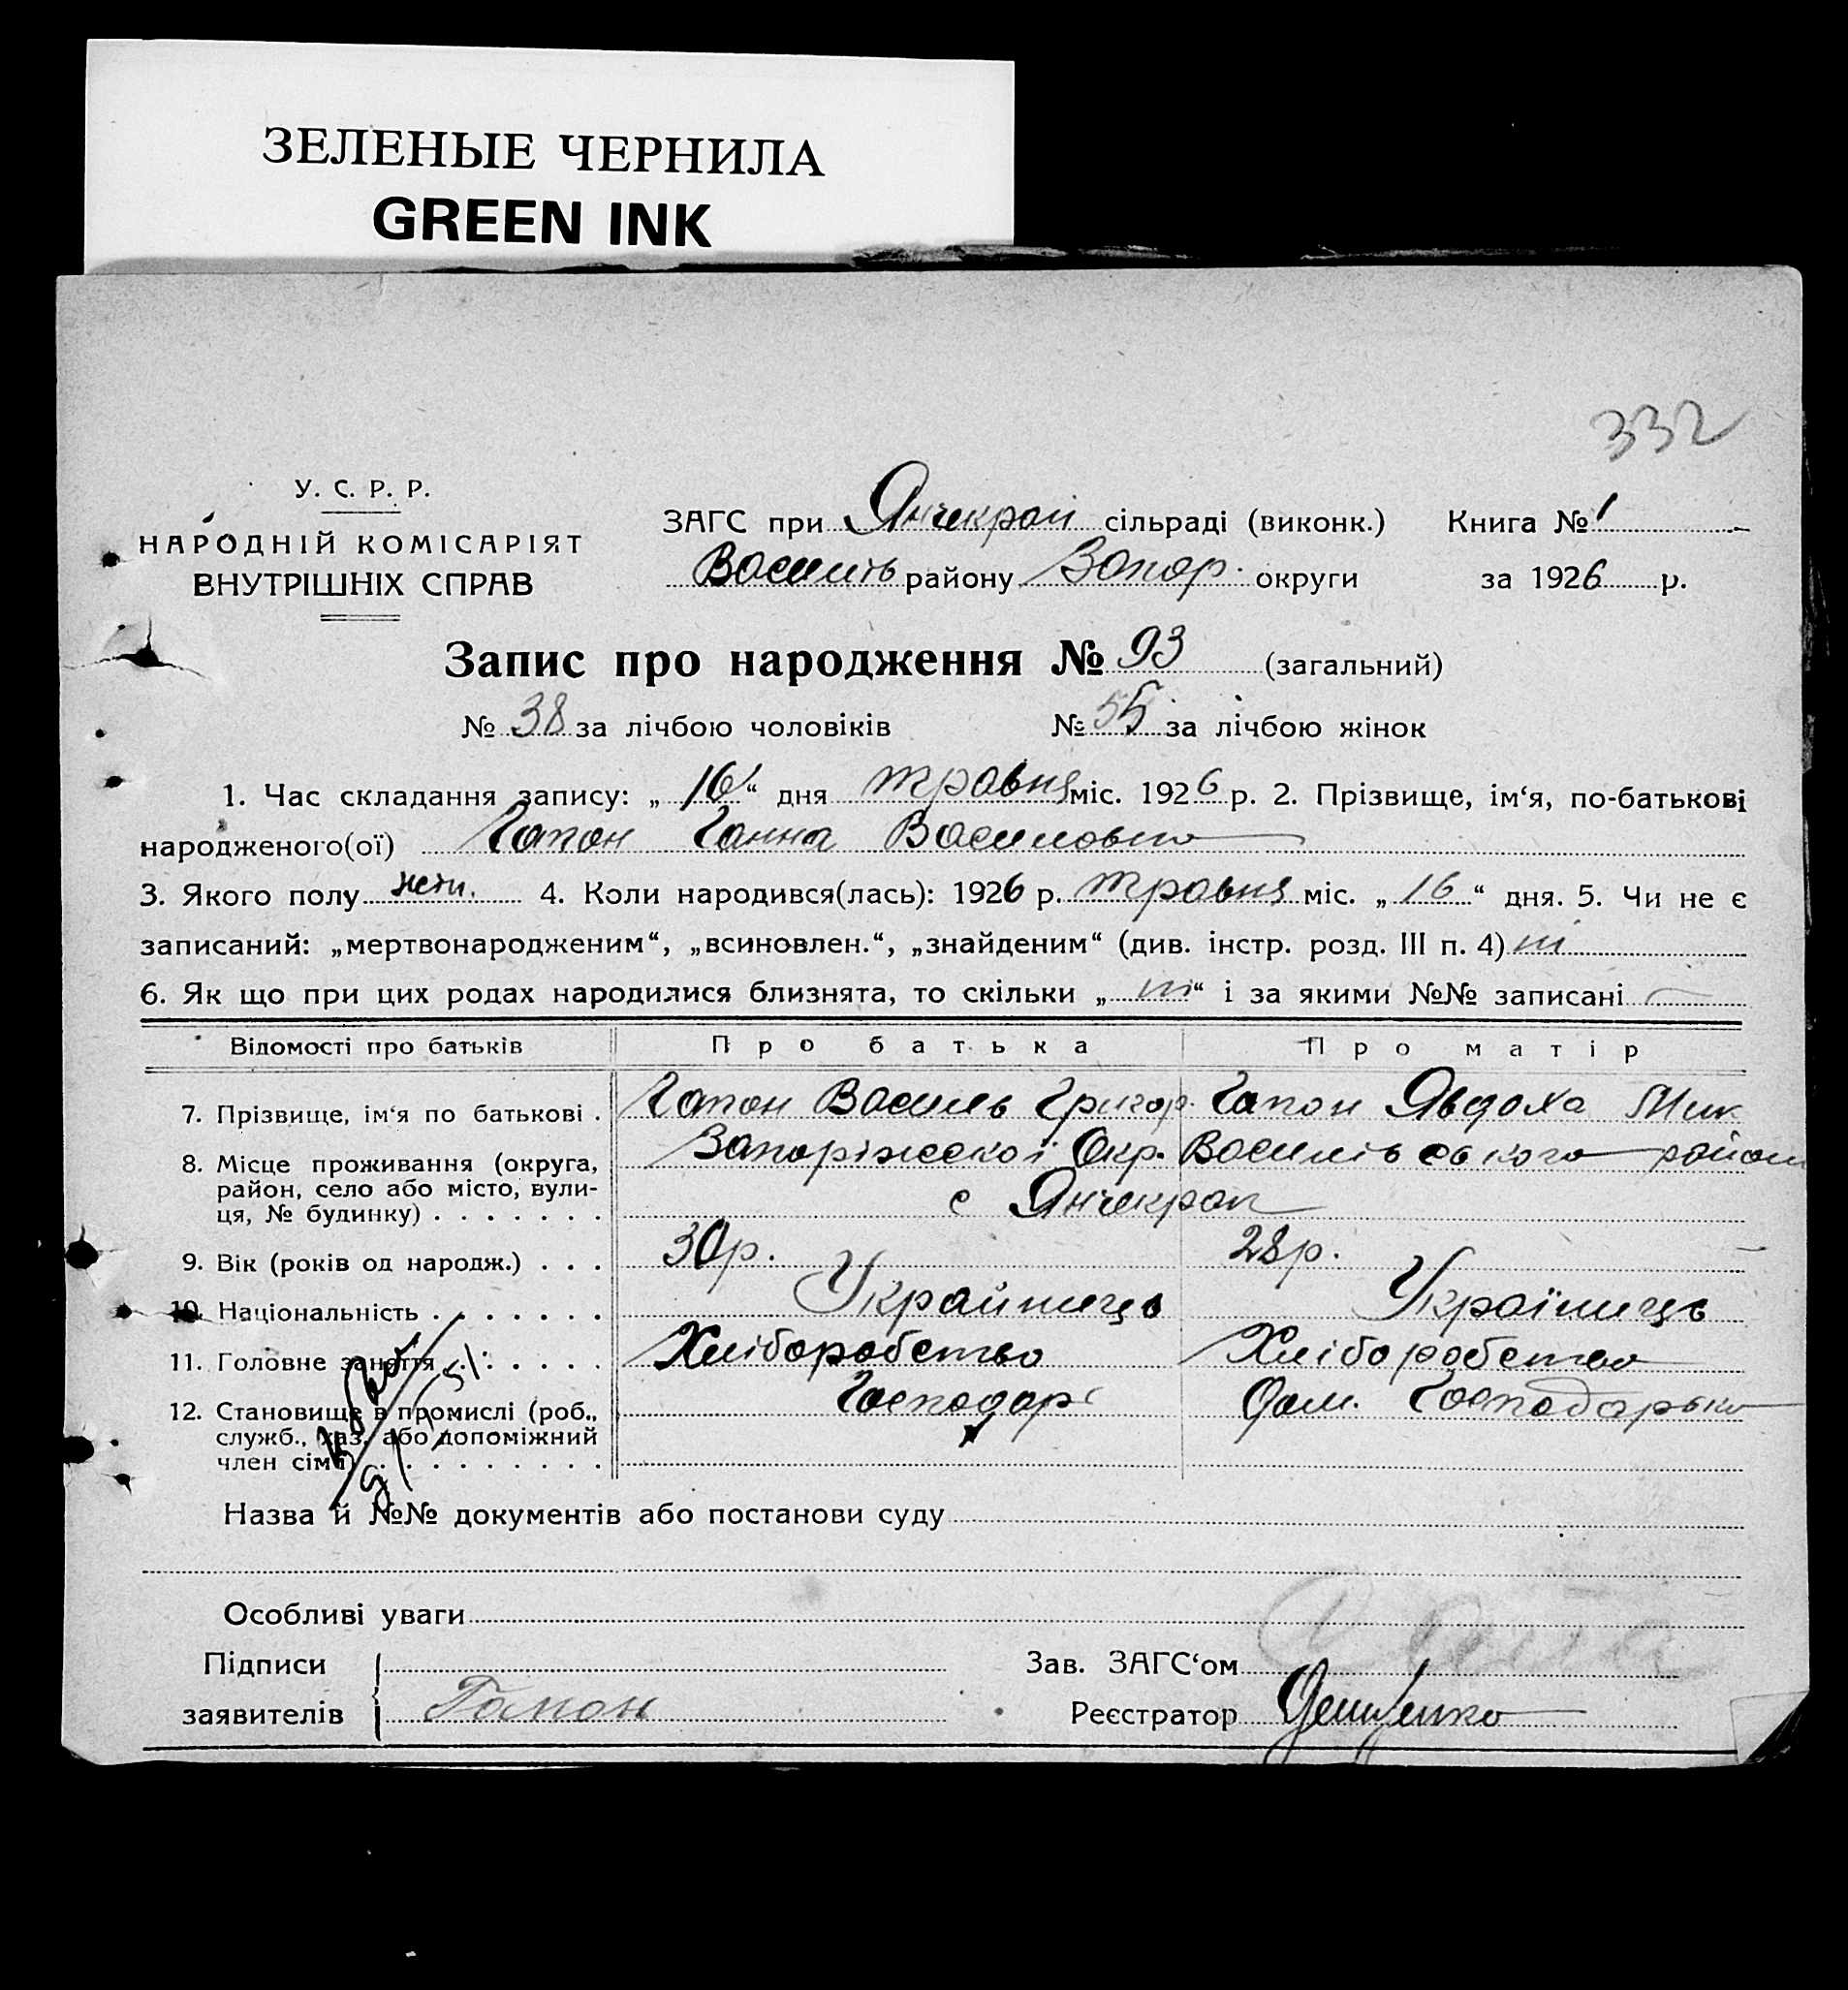 ЗЕЛЕНЫЕ ЧЕРНИЛА
GREEN INK
332
У. С. Р. Р.
НАРОДНІЙ КОМІСАРІЯТ
ВНУТРІШНІХ СПРАВ
ЗАГС при Янчекрак сільраді (виконк.) Книга № 1
Василів району Запор. округи за 1926 р.
Запис про народження № 93 (загальний)
№ 38 за лічбою чоловіків № 55 за лічбою жінок
1. Час складання запису: „ 16 “ дня травня міс. 1926 р. 2. Прізвище, ім‘я, по-батькові
народженого(ої) Гапон Ганна Василовна
3. Якого полу жін. 4. Коли народився(лась): 1926 р. травня міс. „ 16 “ дня. 5. Чи не є
записаний: „мертвонародженим“, „всиновлен.“, „знайденим“ (див. інстр. розд. III п. 4) ні
6. Як що при цих родах народилися близнята, то скільки „ ні “ і за якими №№ записані —
Відомості про батьків Про батька Про матір
7. Прізвище, ім‘я по батькові . Гапон Василь Григор. Гапон Явдоха Мик
8. Місце проживання (округа, район, село або місто, вулиця, № будинку) . . . . . . . Запоріжської Окр. Василівського району
с Янчекрак
9. Вік (років од народж.) . . . 30р. 28р.
10. Національність . . . . . . . Украйинець Україинець
11. Головне заняття . . . . . . Хліборобство Хліборобство
12. Становище в промислі (роб., служб., хаз. або допоміжний член сім‘ї) . . . . . . . . . . Господар Дом. Господарька
Назва й №№ документів або постанови суду
Особливі уваги
Підписи
заявителів Гапон
Зав. ЗАГС‘ом
Реєстратор